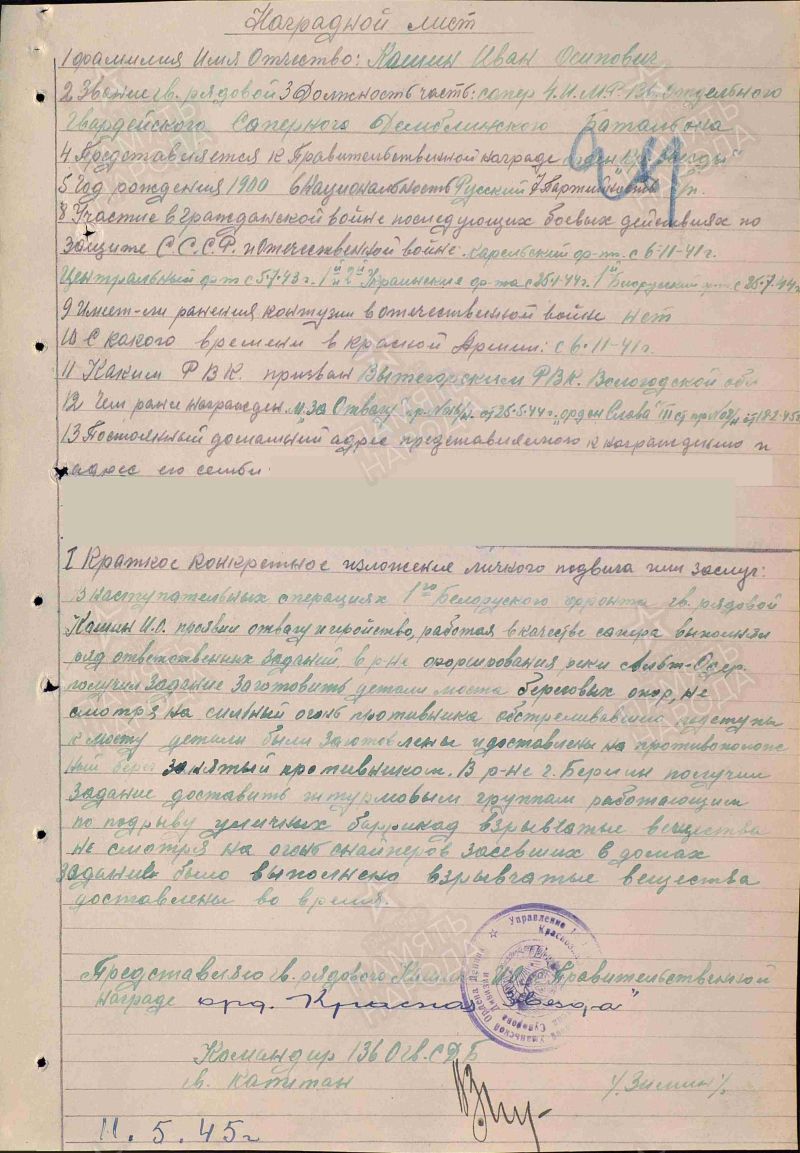 Наградной лист
1 Фамилия Имя Отчество: Кашин Иван Осипович
2 Звание гв. рядовой 3 Должность часть: сапер 4.И.М.Р. 13 Отдельного
Гвардейского Саперного Демблинского Баталиона
4 Представляется к Правительственной награде орден „Кр. Звезды"
5 Год рождения 1900 6 Национальность Русский 7 Партийность б/п.
8 Участие в гражданской войне последующих боевых действиях по
защите С.С.С.Р. и Отечественной войне: Карельский фр-нт. с 6-11-41г.
Центральный фр-т с 5-7-43г. 1й и 2й Украинские фр-та с 25-1-44г. 1й Белорусский фр-т с 25.7.44г.
9 Имеет-ли ранения контузии в отечественной войне нет
10 С какого времени в красной Армии: с 6-11-41г.
11 Каким Р.В.К. призван Вытегорским РВК. Вологодской обл
12 Чем ранее награжден „м. За Отвагу" от 25-5-44г. „орден Слава" III ст
13 Постоянный домашний адрес представляемого к награждению и
адрес его семьи:
I Краткое конкретное изложение личного подвига или заслуг:
В наступательных операциях 1го Белоруского фронта гв. рядовой
Кашин И.О. проявил отвагу и геройство, работая в качестве сапера выполнял
ряд ответственных заданий, в р-не форсирования реки Альт-Одер.
получил задание заготовить детали моста береговых опор, не
смотря на сильный огонь противника обстреливавшего подступы
к мосту детали были заготовлены и доставлены на противополож
ный берег занятый противником. В р-не г. Берлин получил
задание доставить штурмовым группам работающим
по подрыву уличных баррикад взрывчатые вещества
не смотря на огонь снайперов засевших в домах
задание было выполнено взрывчатые вещества
доставлены во время.
Представляю гв. рядового Кашин И.О. Правительственной
награде орд. „Красная Звезда"
Командир 136 Огв.СДБ
гв. капитан /. Зимин /.
11.5.45г